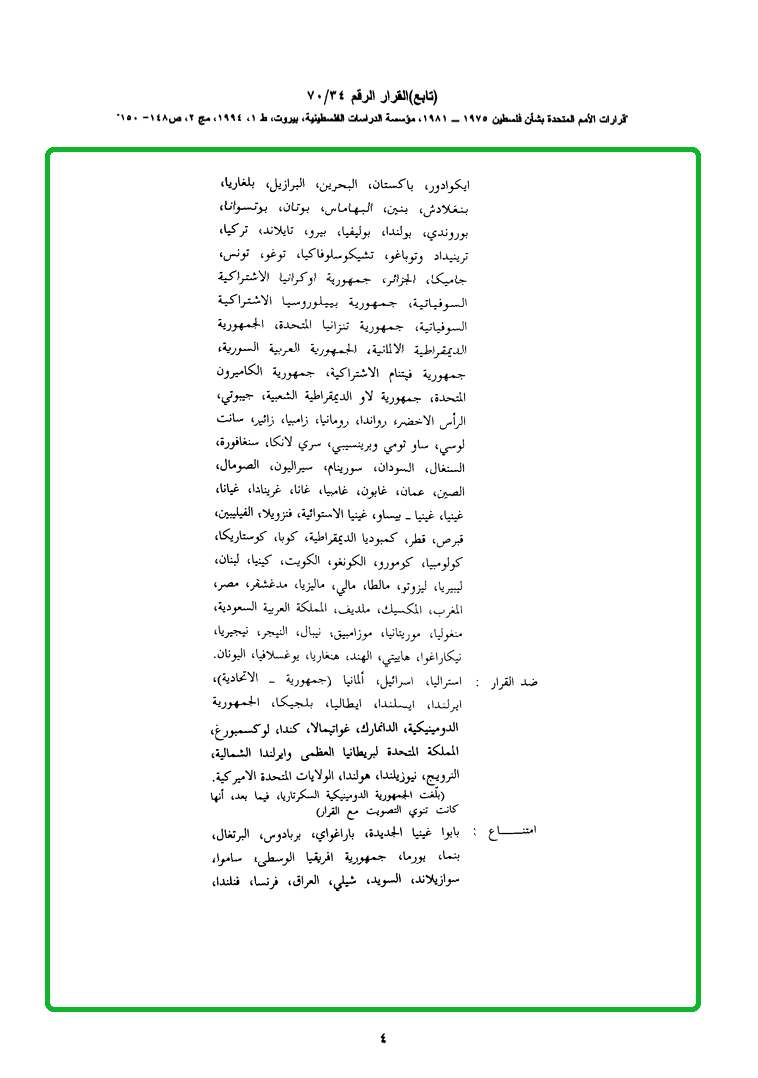 (تابع)القرار الرقم ٧٠/٣٤
"قرارات الأمم المتحدة بشأن فلسطين ١٩٧٥ ــ ١٩٨١، مؤسسة الدراسات الفلسطينية، بيروت، ط ١، ١٩٩٤، مج ٢، ص١٤٨- ١٥٠"
ايكوادور، باكستان، البحرين، البرازيل، بلغاريا،
بنغلادش، بنين، البهاماس، بوتان، بوتسوانا،
بوروندي، بولندا، بوليفيا، بيرو، تايلاند، تركيا،
ترينيداد وتوباغو، تشيكوسلوفاكيا، توغو، تونس،
جاميكا، الجزائر، جمهورية اوكرانيا الاشتراكية
السوفياتية، جمهورية بييلوروسيا الاشتراكية
السوفياتية، جمهورية تنزانيا المتحدة، الجمهورية
الديمقراطية الالمانية، الجمهورية العربية السورية،
جمهورية فيتنام الاشتراكية، جمهورية الكاميرون
المتحدة، جمهورية لاو الديمقراطية الشعبية، جيبوتي،
الرأس الاخضر، رواندا، رومانيا، زامبيا، زائير، سانت
لوسي، ساو تومي وبرينسيبي، سري لانكا، سنغافورة،
السنغال، السودان، سورينام، سيراليون، الصومال،
الصين، عمان، غابون، غامبيا، غانا، غرينادا، غيانا،
غينيا، غينيا ـ بيساو، غينيا الاستوائية، فنزويلا، الفيليبين،
قبرص، قطر، كمبوديا الديمقراطية، كوبا، كوستاريكا،
كولومبيا، كومورو، الكونغو، الكويت، كينيا، لبنان،
ليبيريا، ليزوتو، مالطا، مالي، ماليزيا، مدغشقر، مصر،
المغرب، المكسيك، ملديف، المملكة العربية السعودية،
منغوليا، موريتانيا، موزامبيق، نيبال، النيجر، نيجيريا،
نيكاراغوا، هاييتي، الهند، هنغاريا، يوغسلافيا، اليونان.
ضد القرار : استراليا، اسرائيل، ألمانيا (جمهورية ـ الاتحادية)،
ايرلندا، ايسلندا، ايطاليا، بلجيكا، الجمهورية
الدومينيكية، الدانمارك، غواتيمالا، كندا، لوكسمبورغ،
المملكة المتحدة لبريطانيا العظمى وايرلندا الشمالية،
النرويج، نيوزيلندا، هولندا، الولايات المتحدة الاميركية.
(بلّغت الجمهورية الدومينيكية السكرتاريا، فيما بعد، أنها
كانت تنوي التصويت مع القرار)
امتنـــــاع : بابوا غينيا الجديدة، باراغواي، بربادوس، البرتغال،
بنما، بورما، جمهورية افريقيا الوسطى، ساموا،
سوازيلاند، السويد، شيلي، العراق، فرنسا، فنلندا،
٤